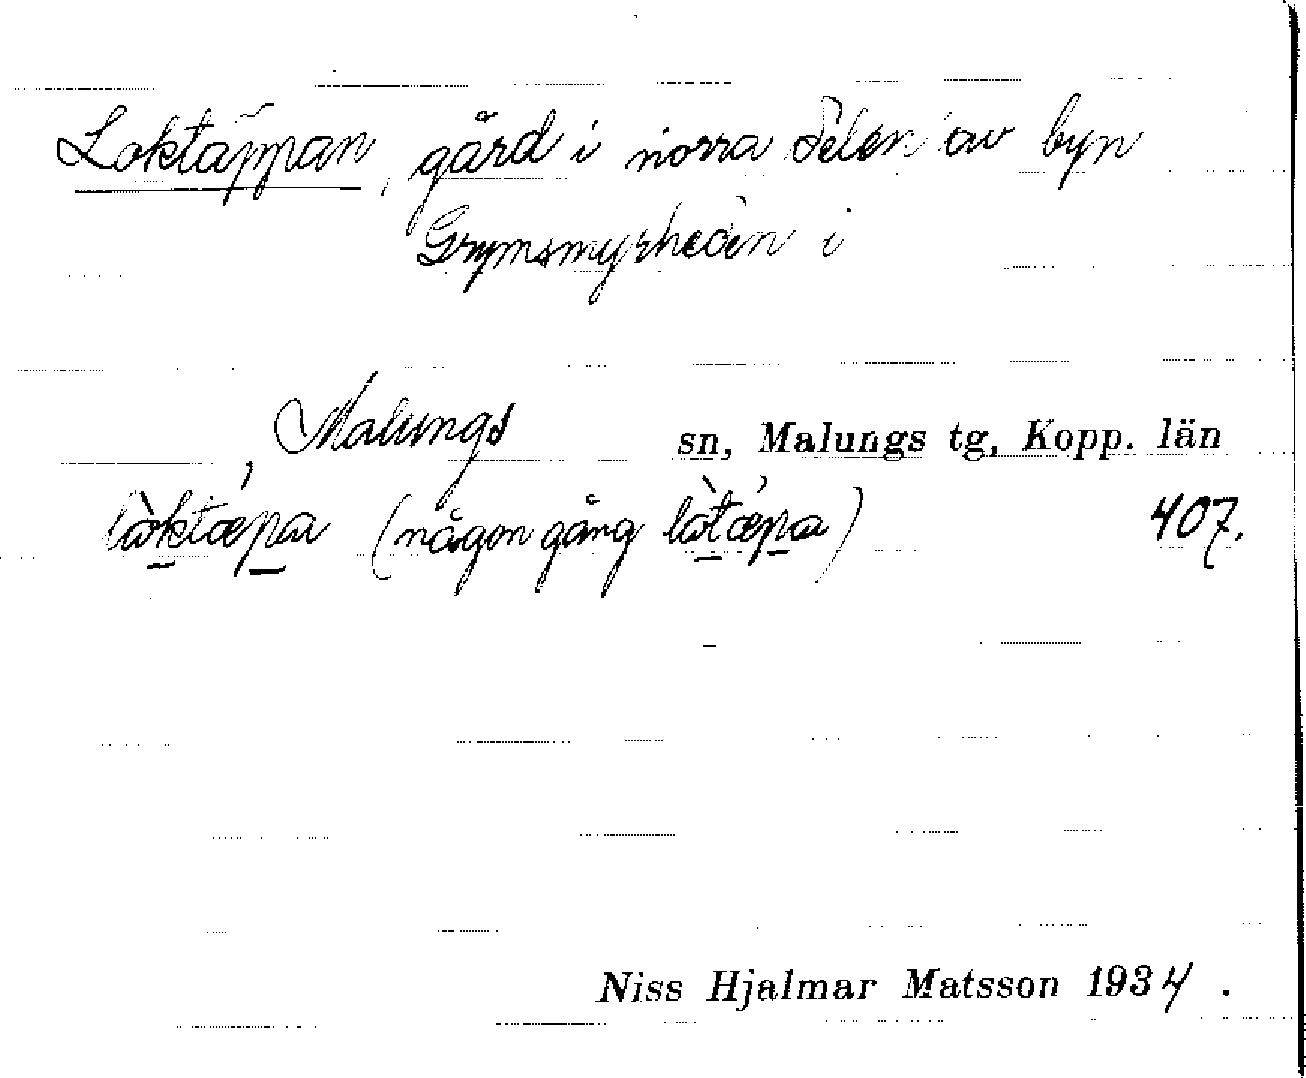 Loktäppan, gård i norra delen av byn
Grymsmyrheden i
Malungs sn, Malungs tg, Kopp. län
lò̠ktǽpa̠ (någon gång lò̠tǽpa̠) 407.
Niss Hjalmar Matsson 1934.